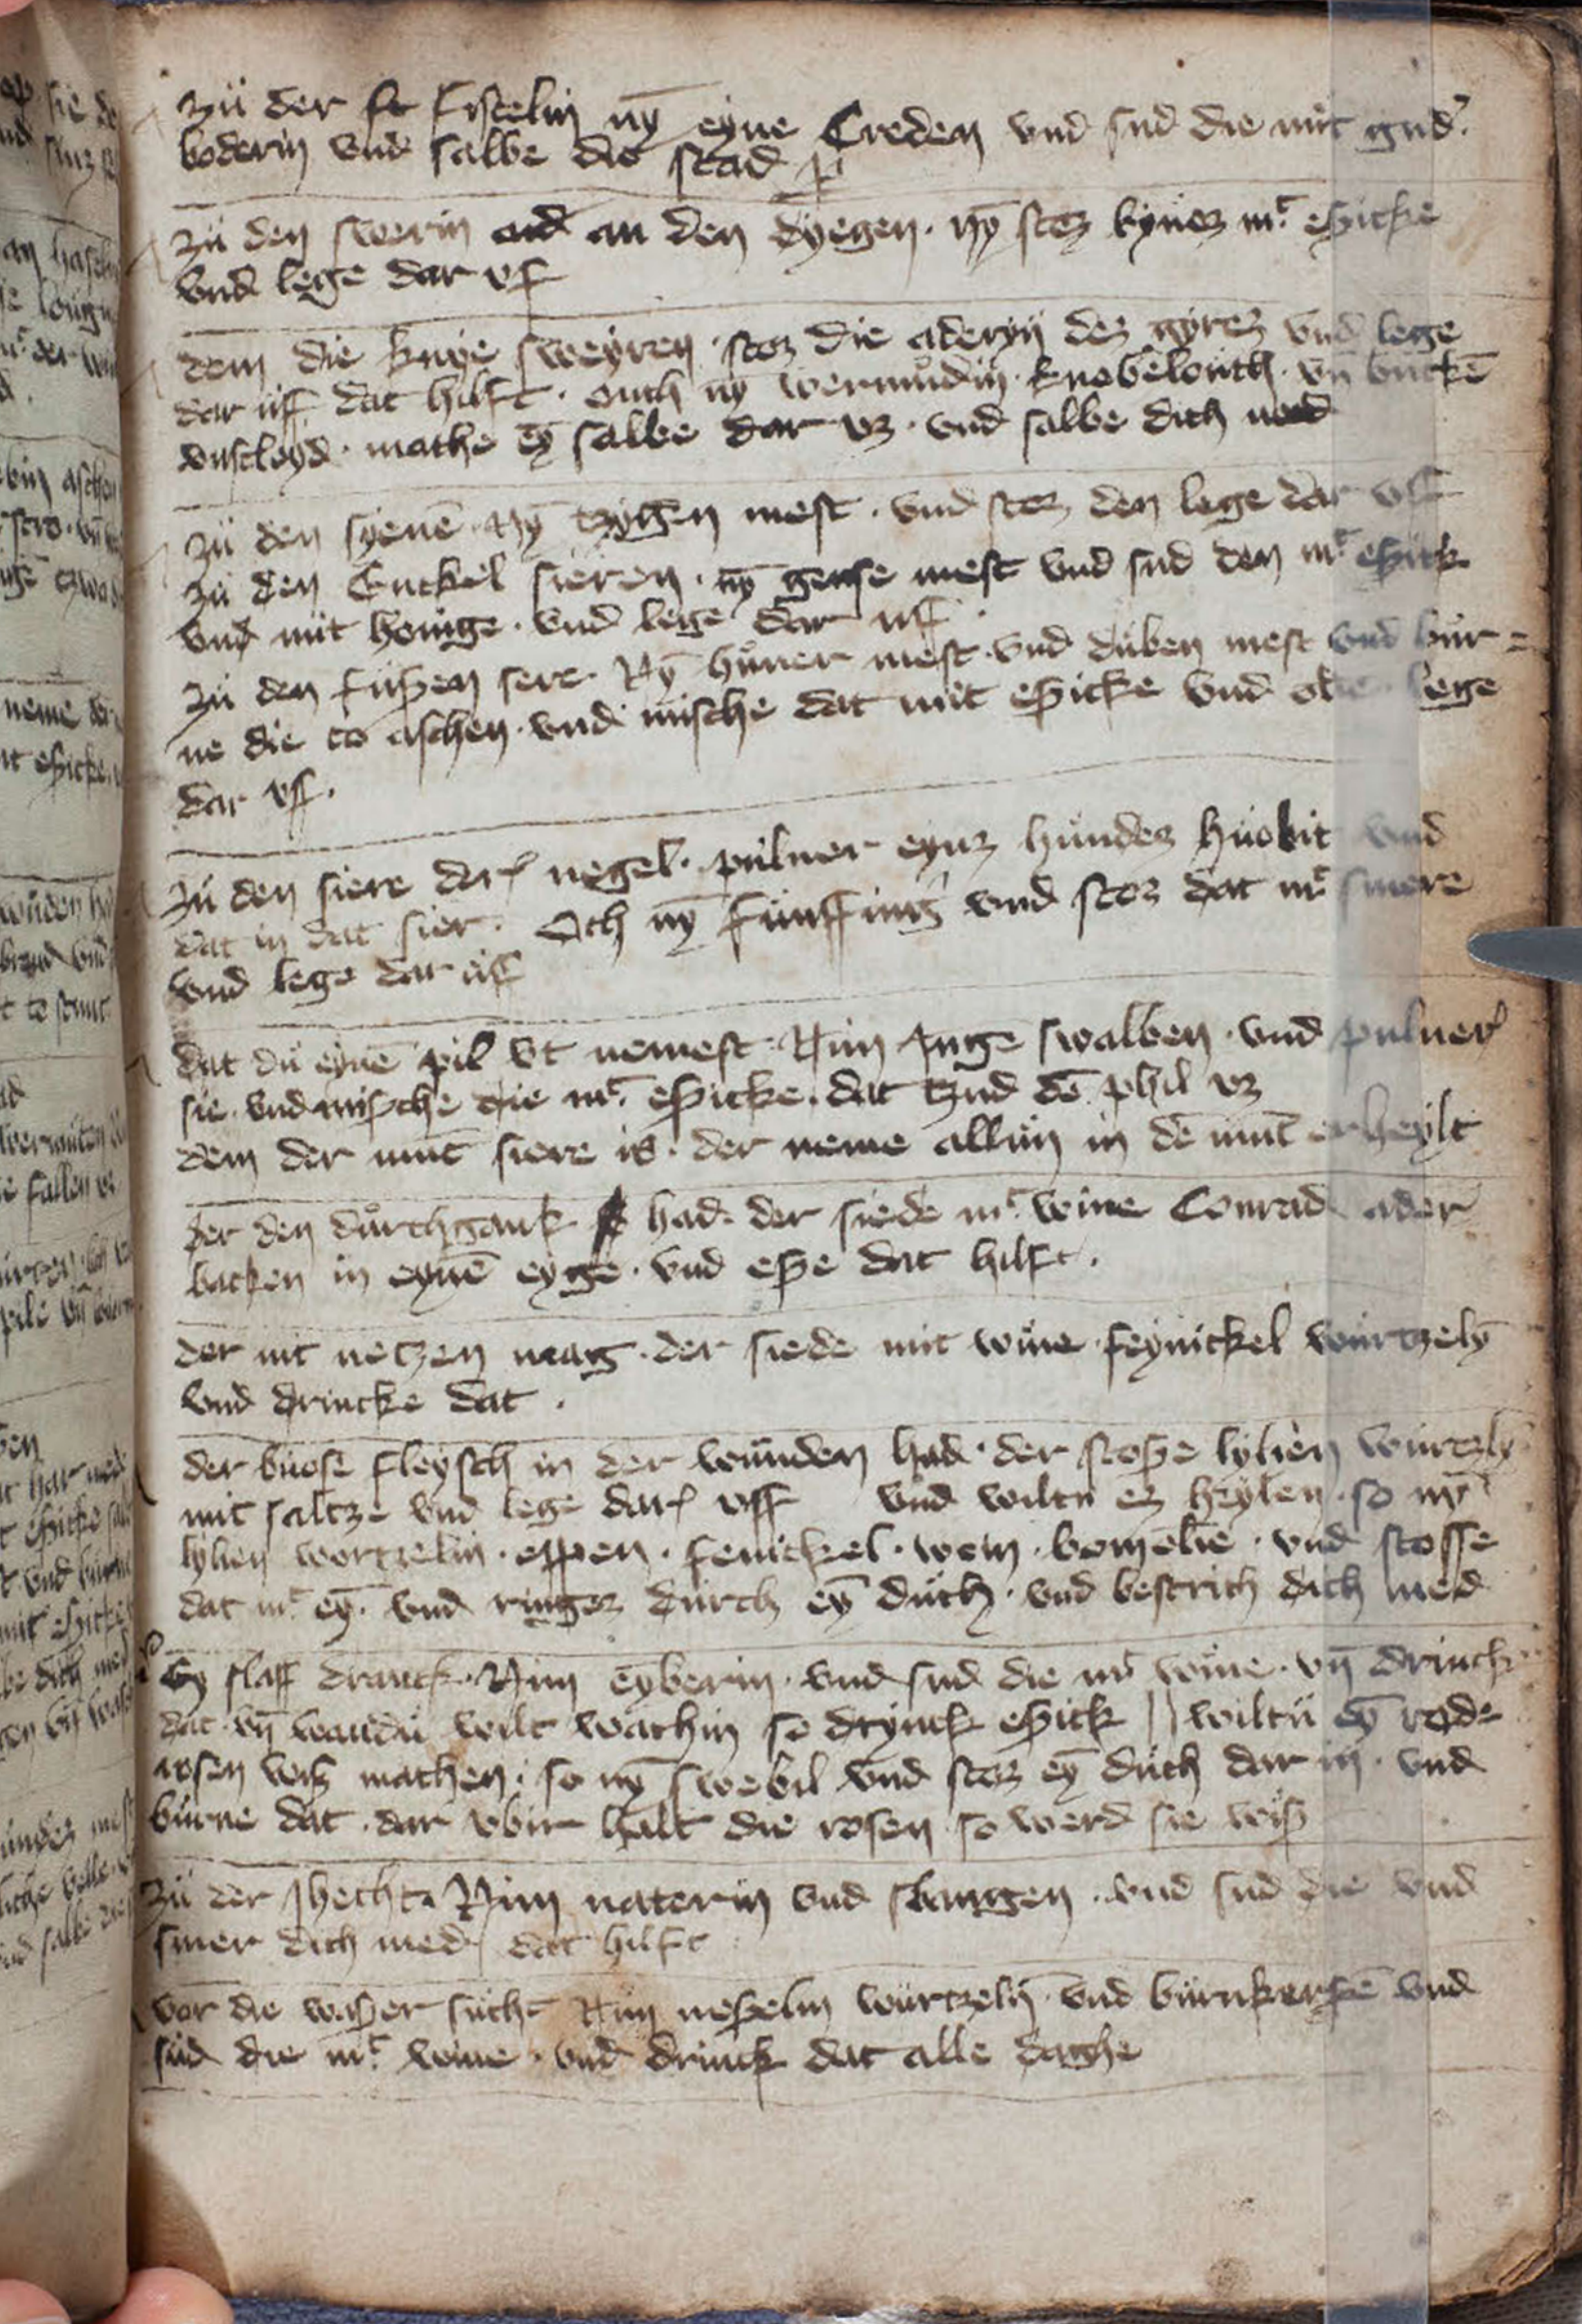 zü der fistelin nÿ eyne Creden vnd sud die mit gud
boderin vnd salbe die stad
zü den swerin an den dyegen · nÿ stoz kynez mt espicke
vnd lege dar vf
dem die knye sweyren · stoz die aderyn dez gyrez vnd lege
dar uff dat hilft · ouch nÿ wermudin · knobelouch · vn̄ buckē
vnscleyd · mache eȳ salbe dar vz · vnd salbe dich med
zü den syenē · Nȳ tzygen mest · vnd stoz den lege dar vff
zü den Enckel sieren · nȳ gense mest vnd sud den mt espick
vnd mit honige · vnd lege dar uff
zü den fußen sere · Nȳ hüner mest · vnd düben mest vnd bür=
ne die to aschen · vnd mische dat mit espicke vnd lege
dar vff ·
zü den siere dar negel · puluer eynz hundez hüobit vnd
dat in dat sier · Och nȳ funffing vnd stoz dat mt smere
vnd lege dar uff
dat du eynē pil vt nemest · Nim Junge swalben · vnd puluer
sie · vnd mische die mt espicke · dat tzud dē phil vz
dem der munt siere is · der neme allün in dē munt erheylt
der den dürchgank had · der siede mt wine Conrad ader
backen in eynē eyge · vnd eße dat hilft ·
der nit netzen mag · der siede mit wine feynickel würtzelȳ
vnd drincke dat ·
der buose fleysch in der wünden had · der stoße lylien würtzlȳ
mit saltze vnd lege dar vff vnd wiltu ez heylen · so nȳ
lylien wortzelin · eppen · fenickel · wein · bomolie · vnd stosse
dat mt eȳ · vnd ringez dürch eȳ düch · vnd bestrich dich med
Ey slaff dranck · Nim eyberin · vnd sud die mt wine · vn̄ drinck
dat · vn̄ wandu wilt wachin so drynck espick || wiltü eȳ rode
rosen wiß machen · so nȳ swebil vnd stoz eȳ düch dar in · vnd
burne dat · dar vbir halt die rosen so werd sie wiß
zü der Nim naterin vnd slangen · vnd sud die vnd
smer dich med dat hilft
vor die waßer sücht Nim neßelin würtzelȳ vnd bürnkerßē vnd
süd die mt wine · vnd drinck dat alle daghe